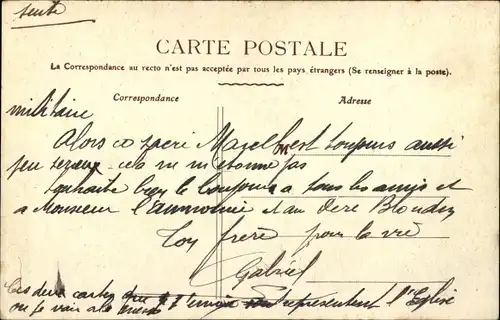 suite
CARTE POSTALE
La Correspondance au recto n'est pas acceptée par tous les pays étrangers (Se renseigner à la poste).
Correspondance
Adresse
militaire
Alors ce est toujours aussi
peu cela ne m'etonne pas
souhaite bien le bonjour a tous les amis et
a Monsieur l'aumonié et au Pere Blondin
Ton frère pour la vie
Gabriel
Ces deux cartes que je t'envoie representent l'Eglise
ou je vais a la messe